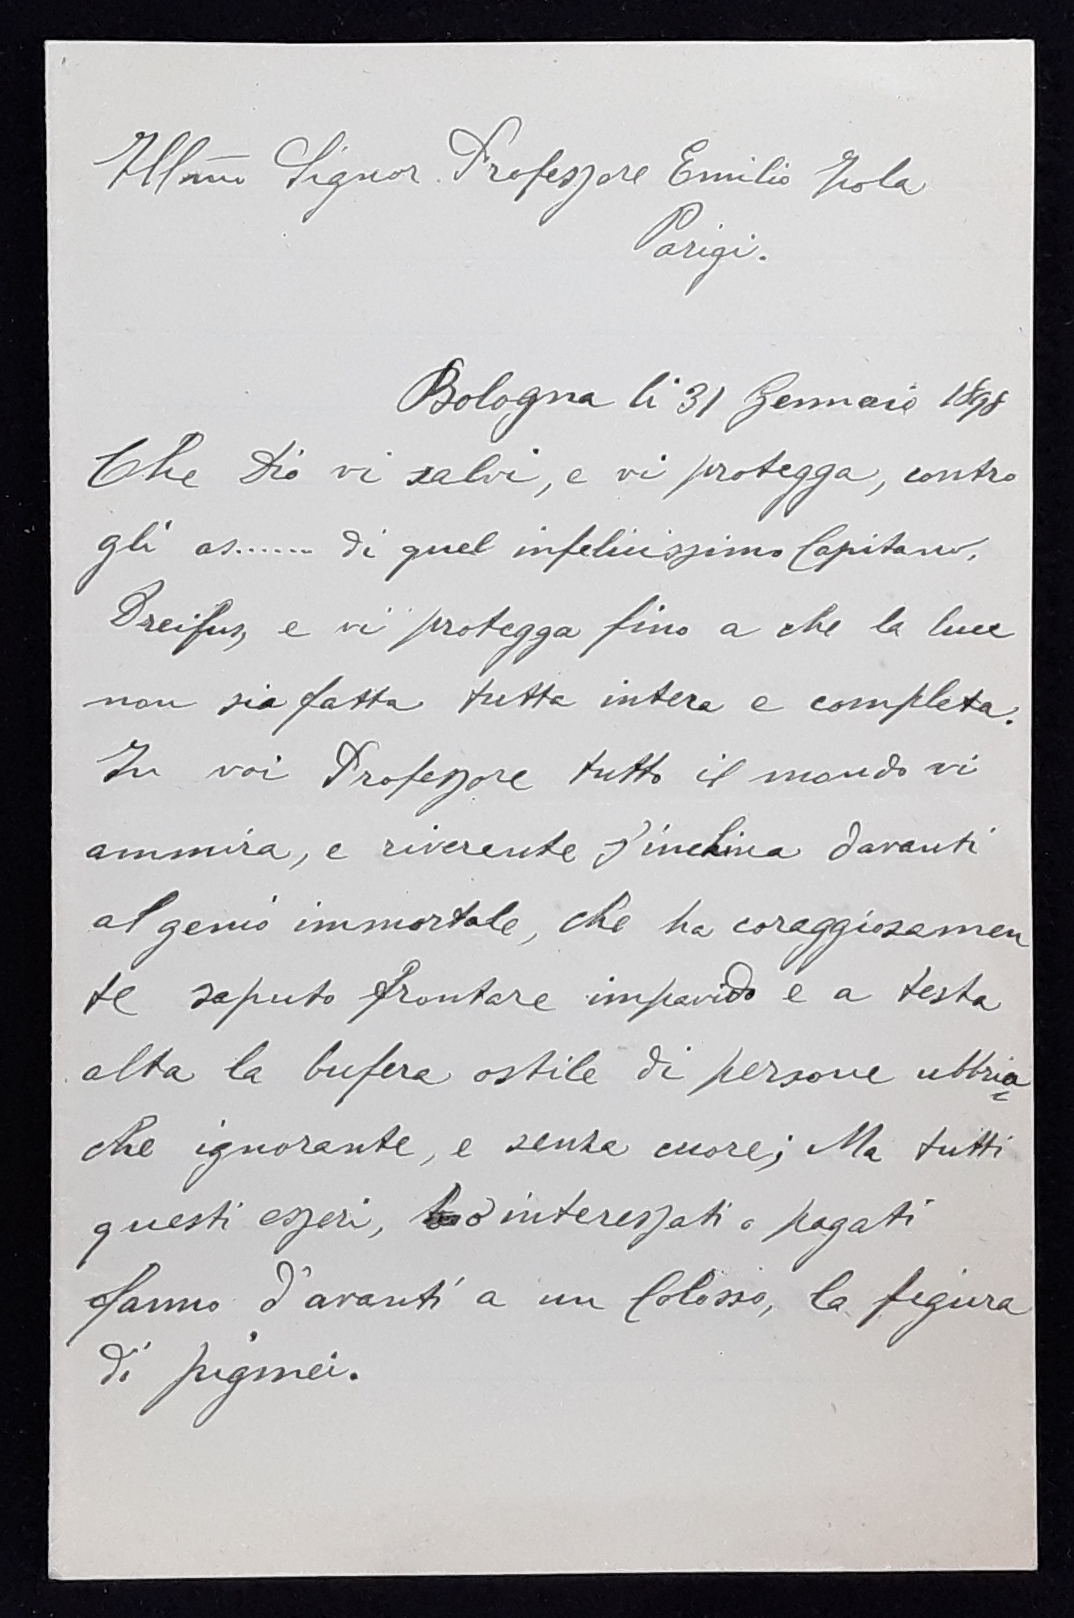 Illmo Signor Professore Emilio Zola
Parigi.
Bologna li 31 Gennaio 1898
Che Dio vi salvi, e vi protegga, contro
gli as....... di quel infelicissimo Capitano,
Dreifus, e vi protegga fino a che la luce
non sia fatta tutta intera e completa.
In voi Professore tutto il mondo vi
ammira, e riverente s'inchina davanti
al genio immortale, che ha coraggiosamen
te saputo frontare impavido e a testa
alta la bufera ostile di persone ubbria
che ignorante, e senza cuore; Ma tutti
questi esseri, o interessati o pagati
fanno d'avanti a un Colosso, la figura
di pigmei.